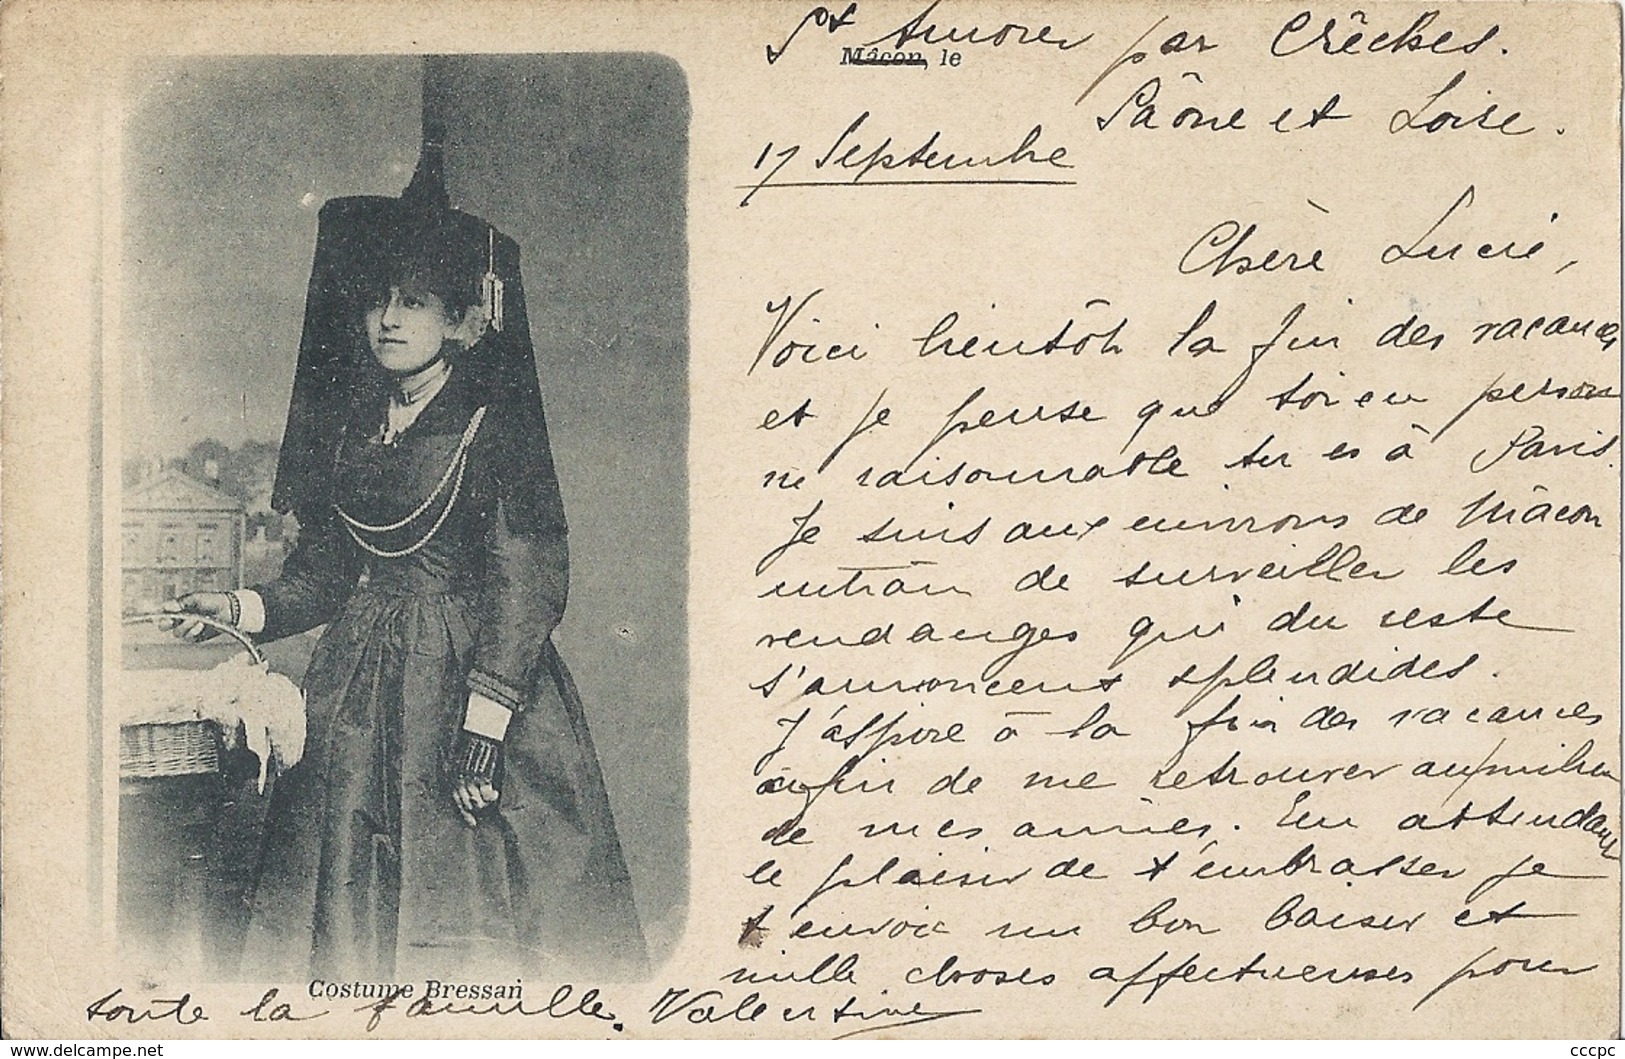 St Amour par Crêches.
Mâcon, le
Saône et Loire.
17 Septembre
Chère Lucie,
Voici bientôt la fin des vacances
et je pense que toi en person
ne raisonnable tu es à Paris.
Je suis aux environs de Mâcon
en train de surveiller les
vendanges qui du reste
s'annoncent splendides.
J'aspire à la fin des vacances
afin de me retrouver au milieu
de mes amies. En attendant
le plaisir de t'embrasser je
t'envoie un bon baiser et
mille choses affectueuses pour
Costume Bressan
toute la famille. Valentine
cccpc
www.delcampe.net